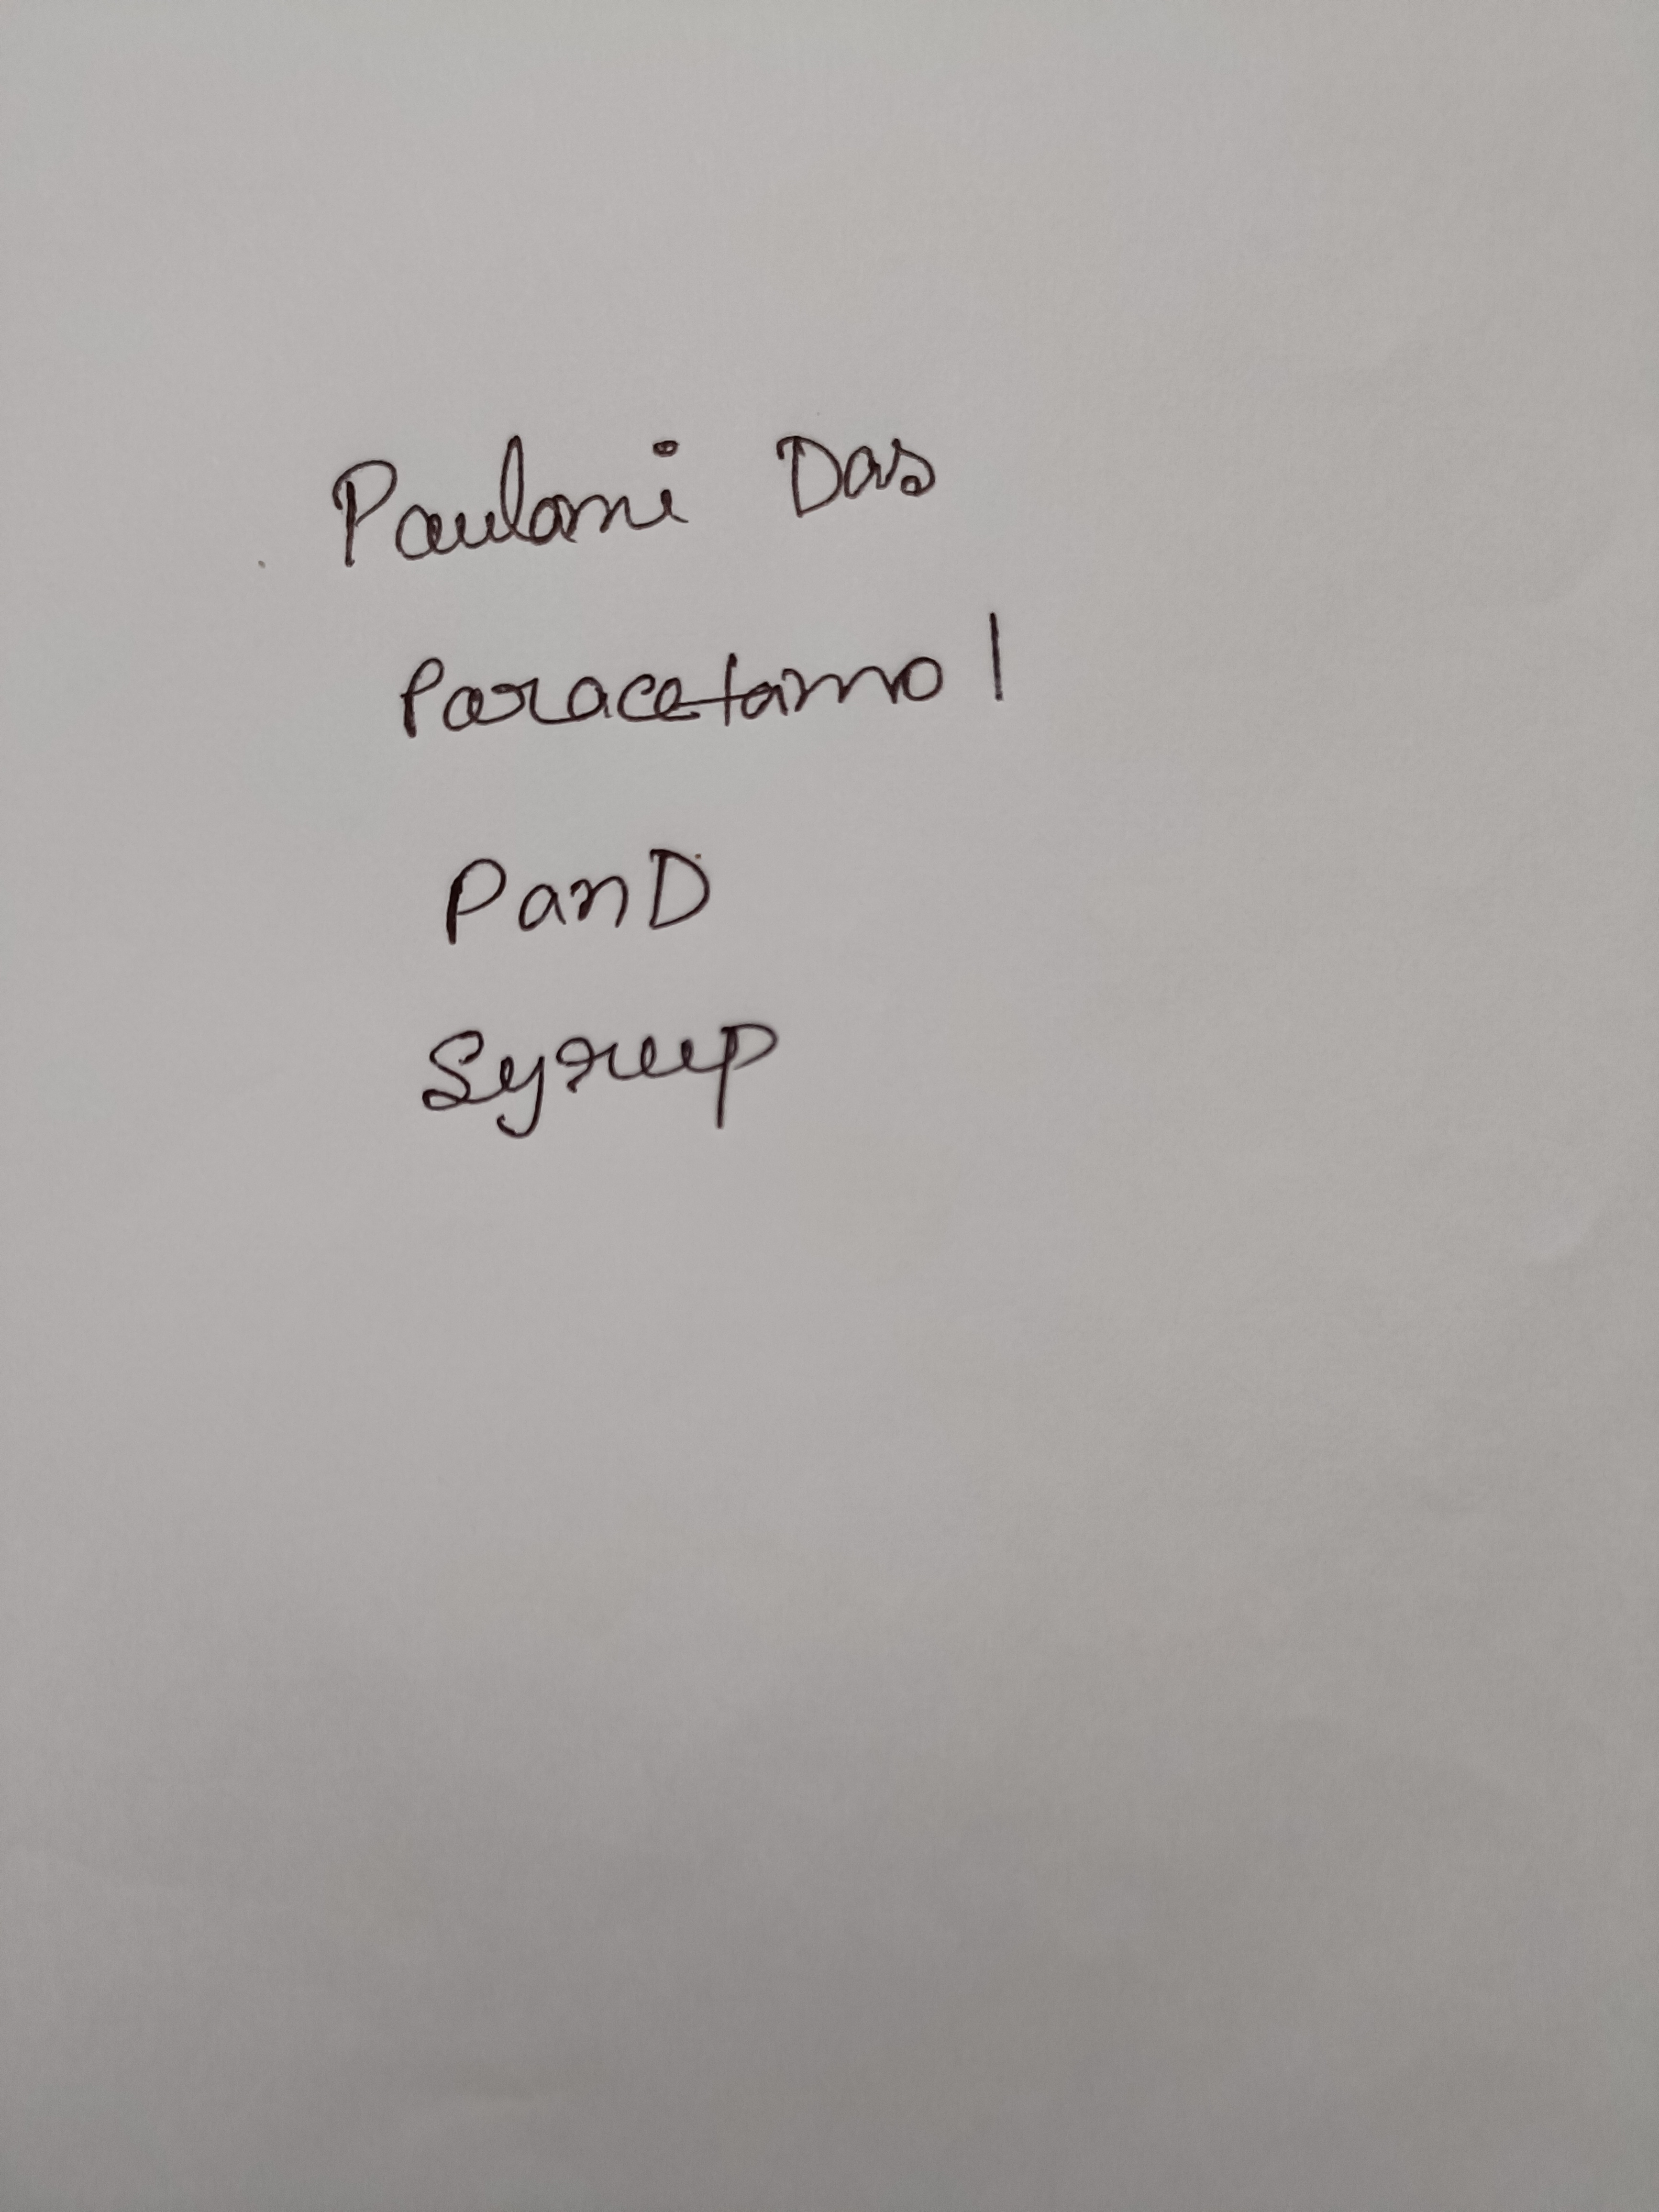 Paulami Das
Paracetamol
PanD
Syrup